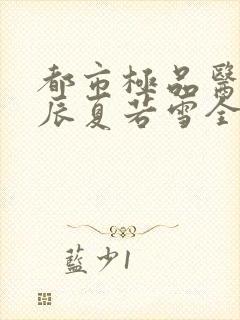 都市極品醫
辰夏若雪全
藍少1